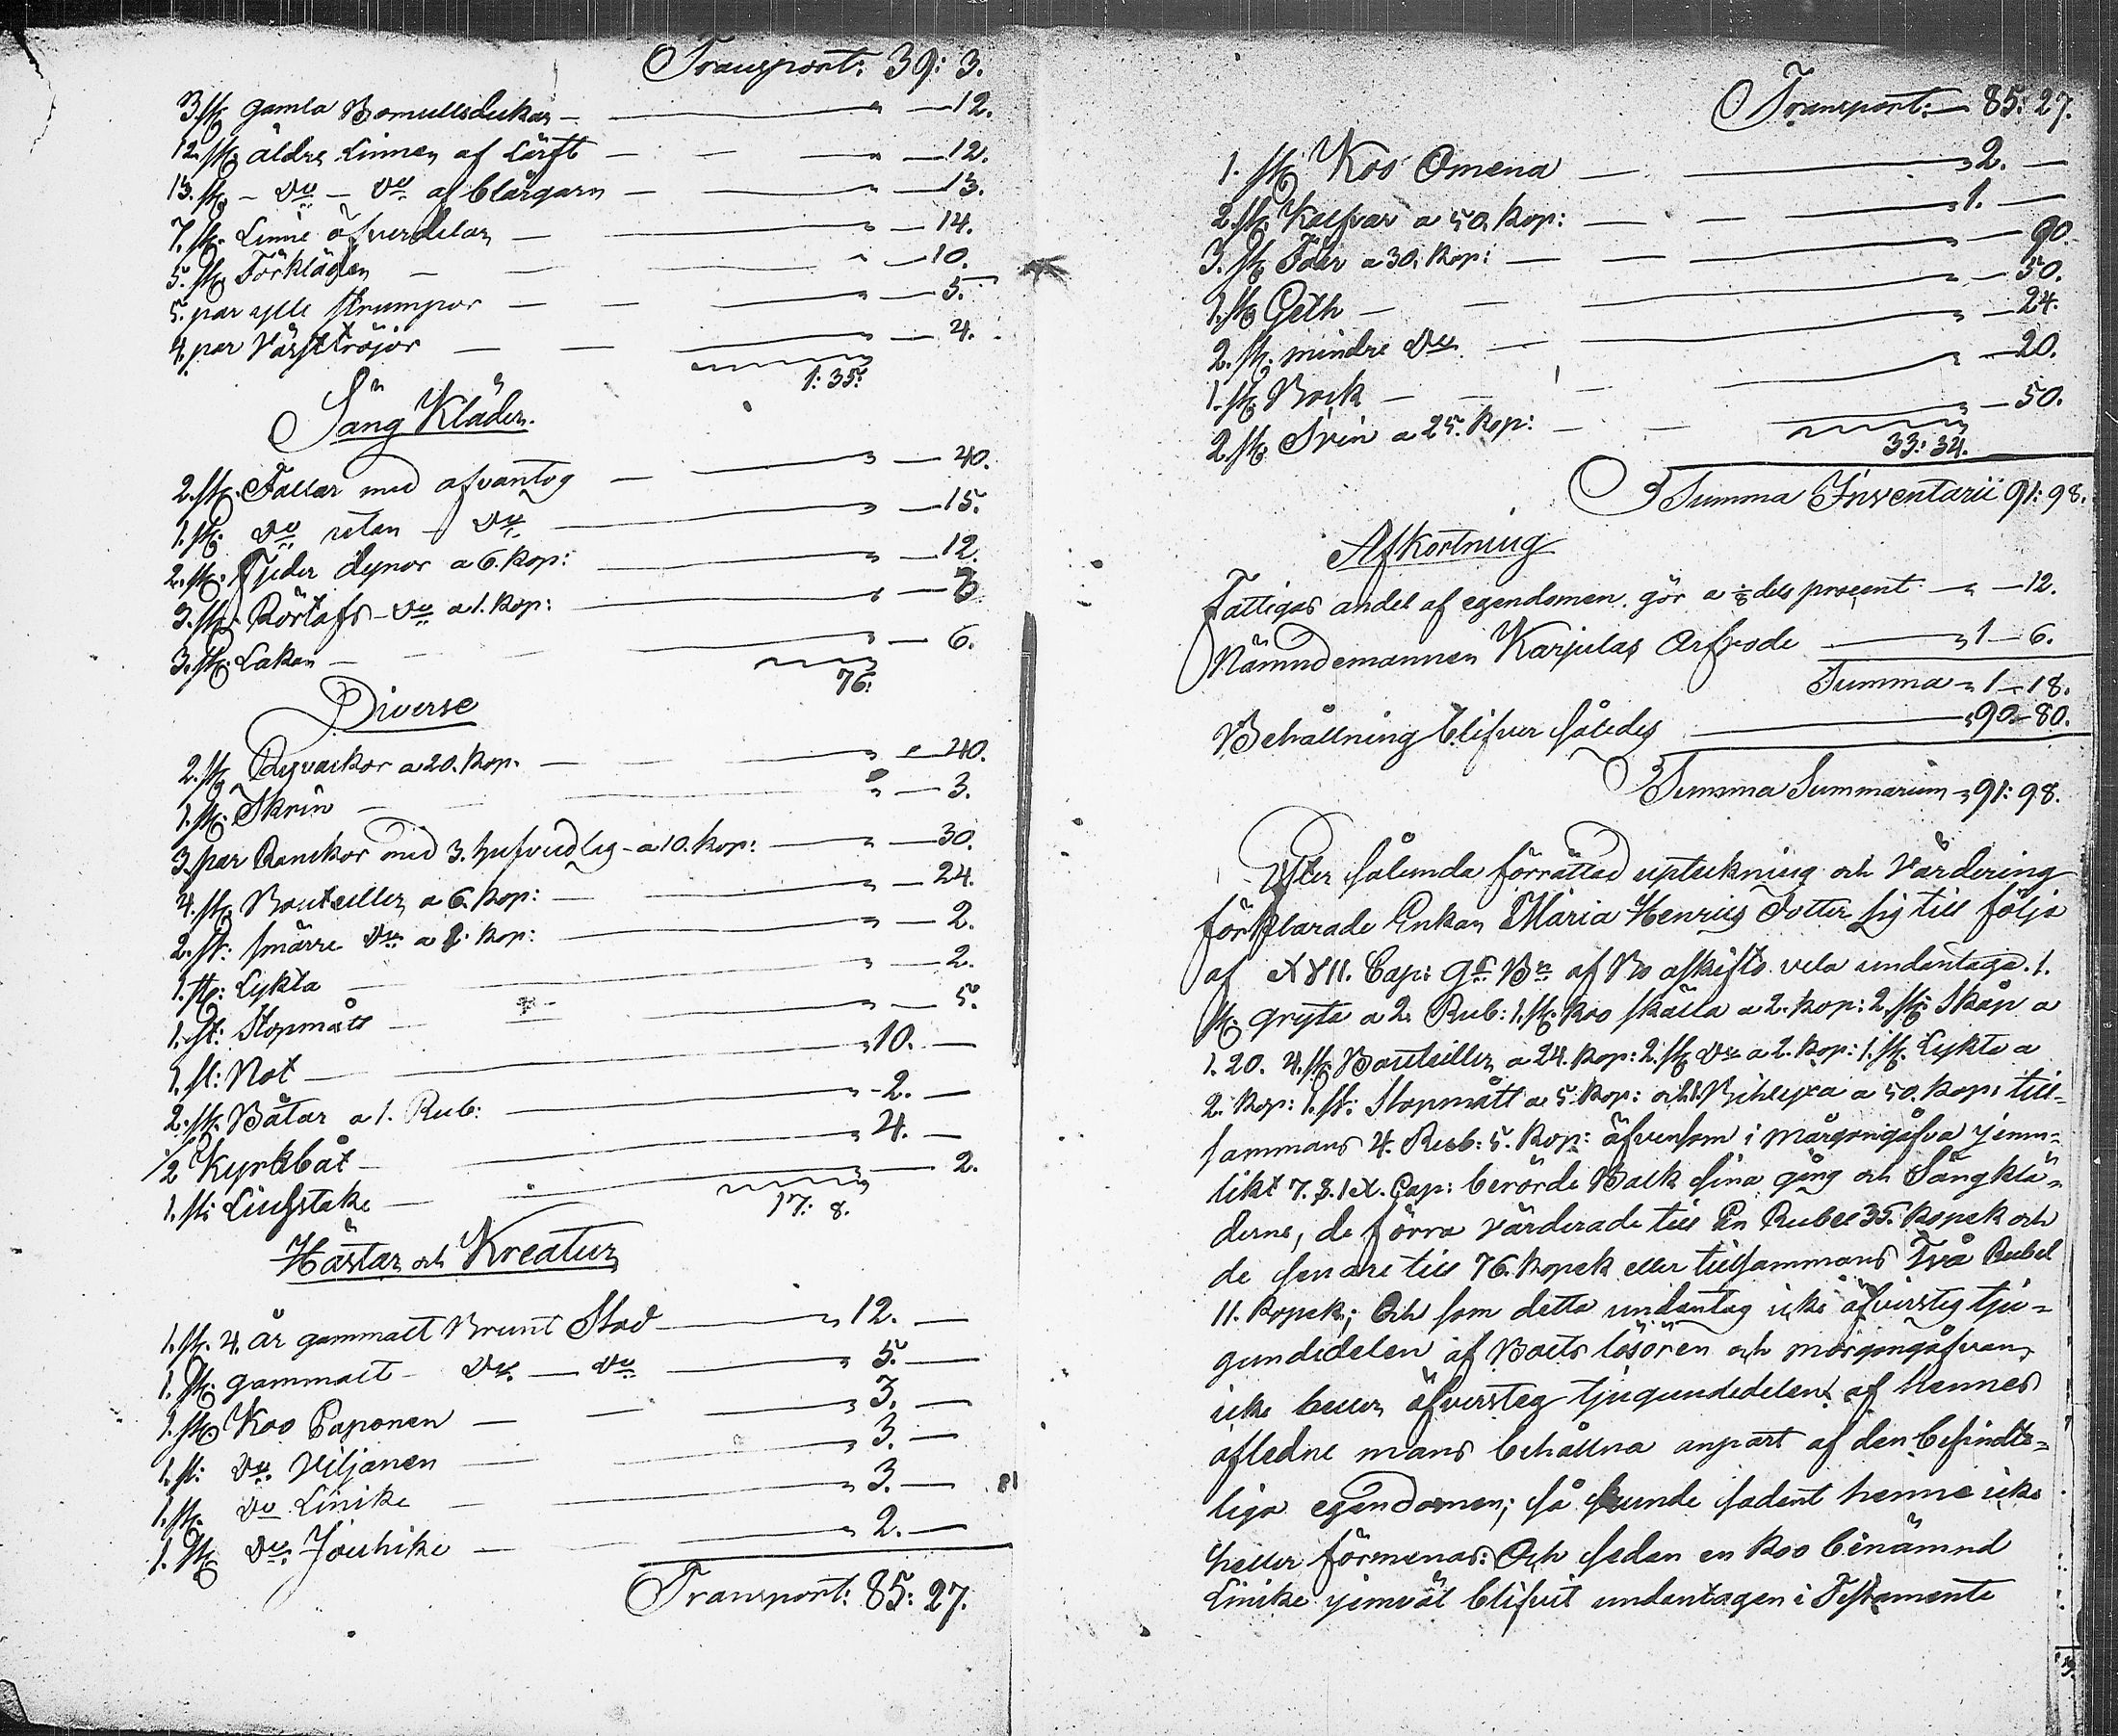 Transport: 39: 3.
3. st. gamla Bomullsdukar — — 12.
12. st. äldre Linnen af Lärft — — 12.
13. st. — Do — Do af blårgarn — — 13.
7. st. Linne öfverdelar — — 14.
5. st. Förkläden — — 10.
5. par ylle strumpor — — 5.
4. par Västtröjor — — 4.
1: 35.
Säng Kläder.
2. st. Fällar med afvantog — — 40.
1. st. Do utan — Do — 15.
2. st. Fjeder dynor a 6. kop: — 12.
3. st. Rörtafs — Do a 1. kop: — 3.
3. st. Lakan — — 6.
76:
Diverse
2. st. a 20. kop. — — 40.
1. st. Skrin — — 3.
3. par Ranckor med 3. hufvudlag — a 10. kop: — 30.
4. st. Bouteiller a 6. kop: — 24.
2. st: smärre Do a 1. kop: — 2.
1. st: Lykta — — 2.
1. st: Stopmått — — 5.
1. st: Not — 10. —
2. st. Båtar a 1. Rub: — 2. —
1/2 Kyrkbåt — 4. —
1. st: Liusstake — — 2.
17: 8.
Hästar och Kreatur
1. st. 4. år gammalt Brunt Stod — 12. —
1. st. gammalt — Do — Do — 5. —
1. st. Koo Paponen — 3. —
1. st: Do Viljanen — 3. —
1. st. Do Linike — 3. —
1. st. Do Jouhike — 2. —
Transport: 85: 27.
Transport: — 85: 27.
1. st. Koo Omena — 2. —
2. st. Kalfvar a 50. kop: — 1. —
3. st. Får a 30. kop: — — 90.
1. st. Geth — — 50.
2. st. mindre Do — — 24.
1. st. Bock — — 20.
2. st. Svin a 25. kop: — — 50.
33: 34.
Summa Inventarii 91: 98.
Afkortning
Fattigas andel af egendomen gör a 1/8 dels procent — — 12.
Nämndemannen Karjulas Arfvode — 1 — 6.
Summa — 1 — 18.
Behållning blifver således — 90 — 80.
Summa Summarum — 91: 98.
Efter sålunda förrättad upteckning och Värdering
förklarade Enkan Maria Henrics Dotter sig till följe
af XVII. Cap: Gs. Bn. af Bo afskifto vela undantaga. 1.
st. gryta a 2. Rub: 1. st. koo skälla a 2. kop: 2. st. Skåp a
1. 20. 4. st. Bouteiller a 24. kop: 2. st. Do a 2. kop: 1. st. Lykta a
2. kop: 1. st: Stopmått a 5. kop: och 1. a 50. kop: till-
sammans 4. Rub: 5. kop: äfvensom i mårgongåfva jem-
likt 7. §. IX. Cap: berörde Balk sina gång och Sängklä-
derne, de förra värderade till En Rubel 35. kopek och
de senare till 76. kopek eller tillsammans Två Rubel
11. kopek; Och som detta undantag icke öfverstig tju-
gundedelen af Boets lösören och mårgongåfvan,
icke heller öfversteg tjugundedelen af hennes
afledne mans behållna anpart af den befindte-
liga egendomen; så kunde sådent henne icke
heller förmenas: Och sedan en koo benämnd
Linike jemväl blifvit undantagen i Testamente